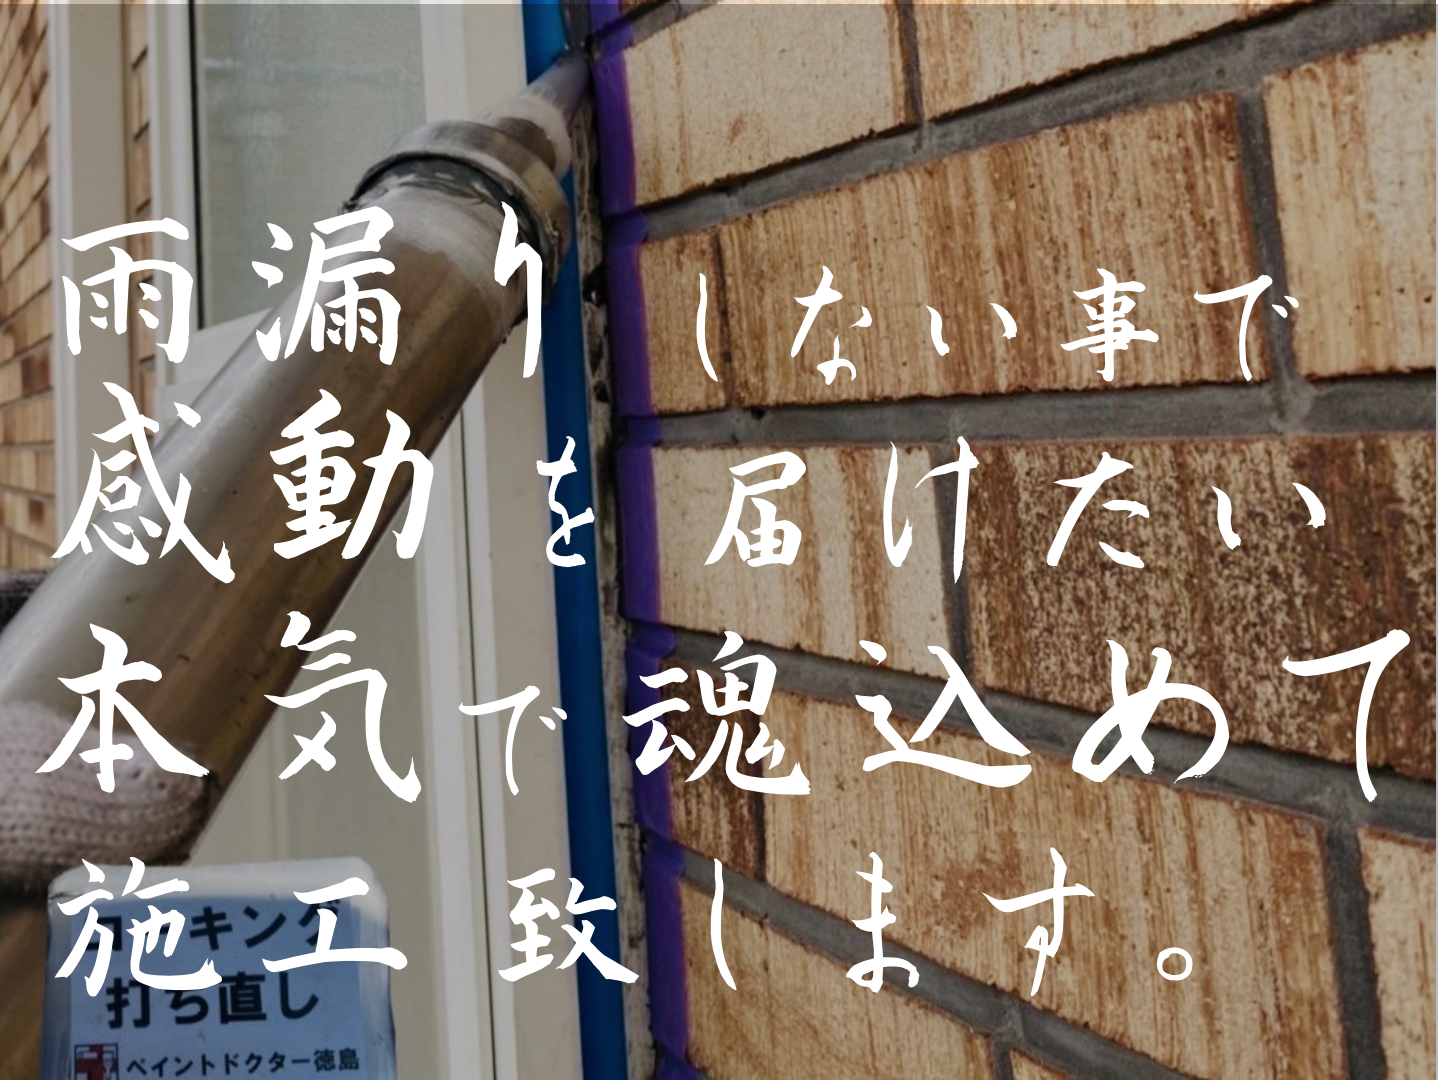 雨漏りしない事で
感動を届けたい
本気で魂込めて
施工致します。
コーキング
打ち直し
ペイントドクター徳島